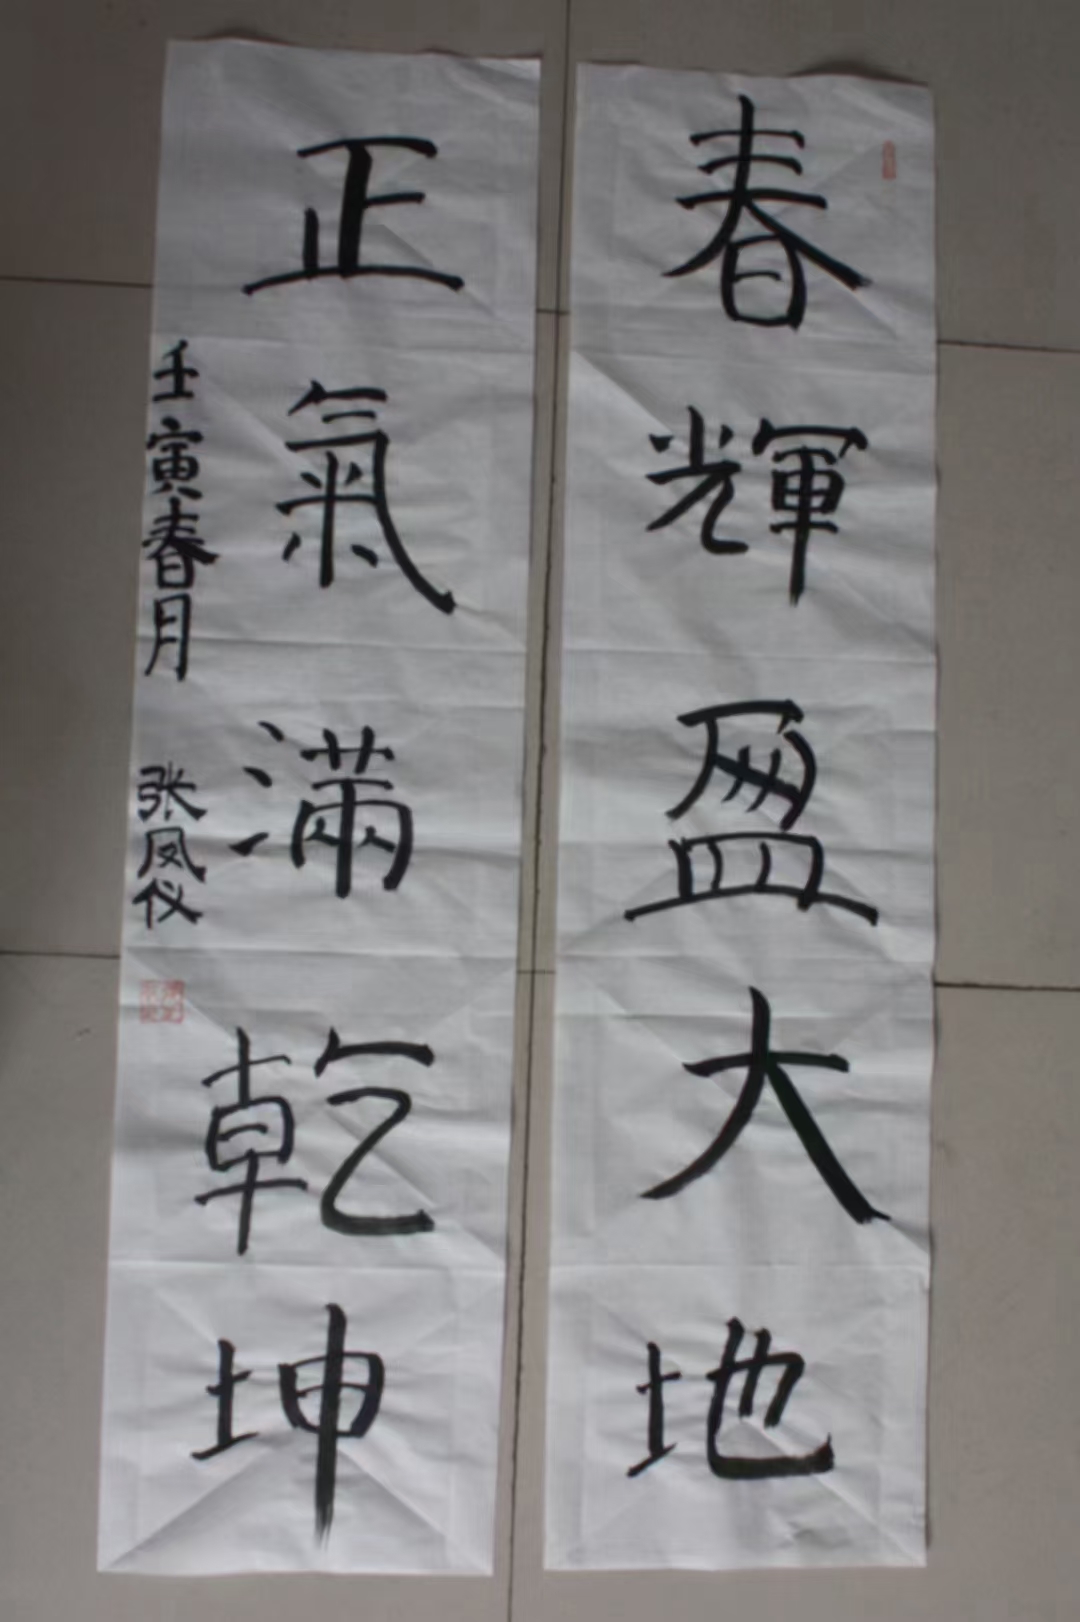 春輝盈大地
正氣滿乾坤
壬寅春月 张凤仪